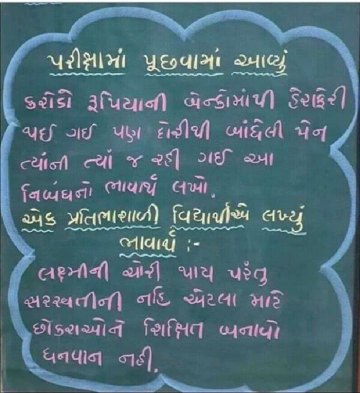 પરીક્ષામાં પૂછવામાં આવ્યું
કરોડો રૂપિયાની બેન્કોમાંથી હેરાફેરી
થઈ ગઈ પણ દોરીથી બાંધેલી પેન
ત્યાંની ત્યાં જ રહી ગઈ આ
નિબંધનો ભાવાર્થ લખો.
એક પ્રતિભાશાળી વિદ્યાર્થીએ લખ્યું
ભાવાર્થ :-
લક્ષ્મીની ચોરી થાય પરંતુ
સરસ્વતીની નહિ એટલા માટે
છોકરાઓને શિક્ષિત બનાવો
ધનવાન નહી.